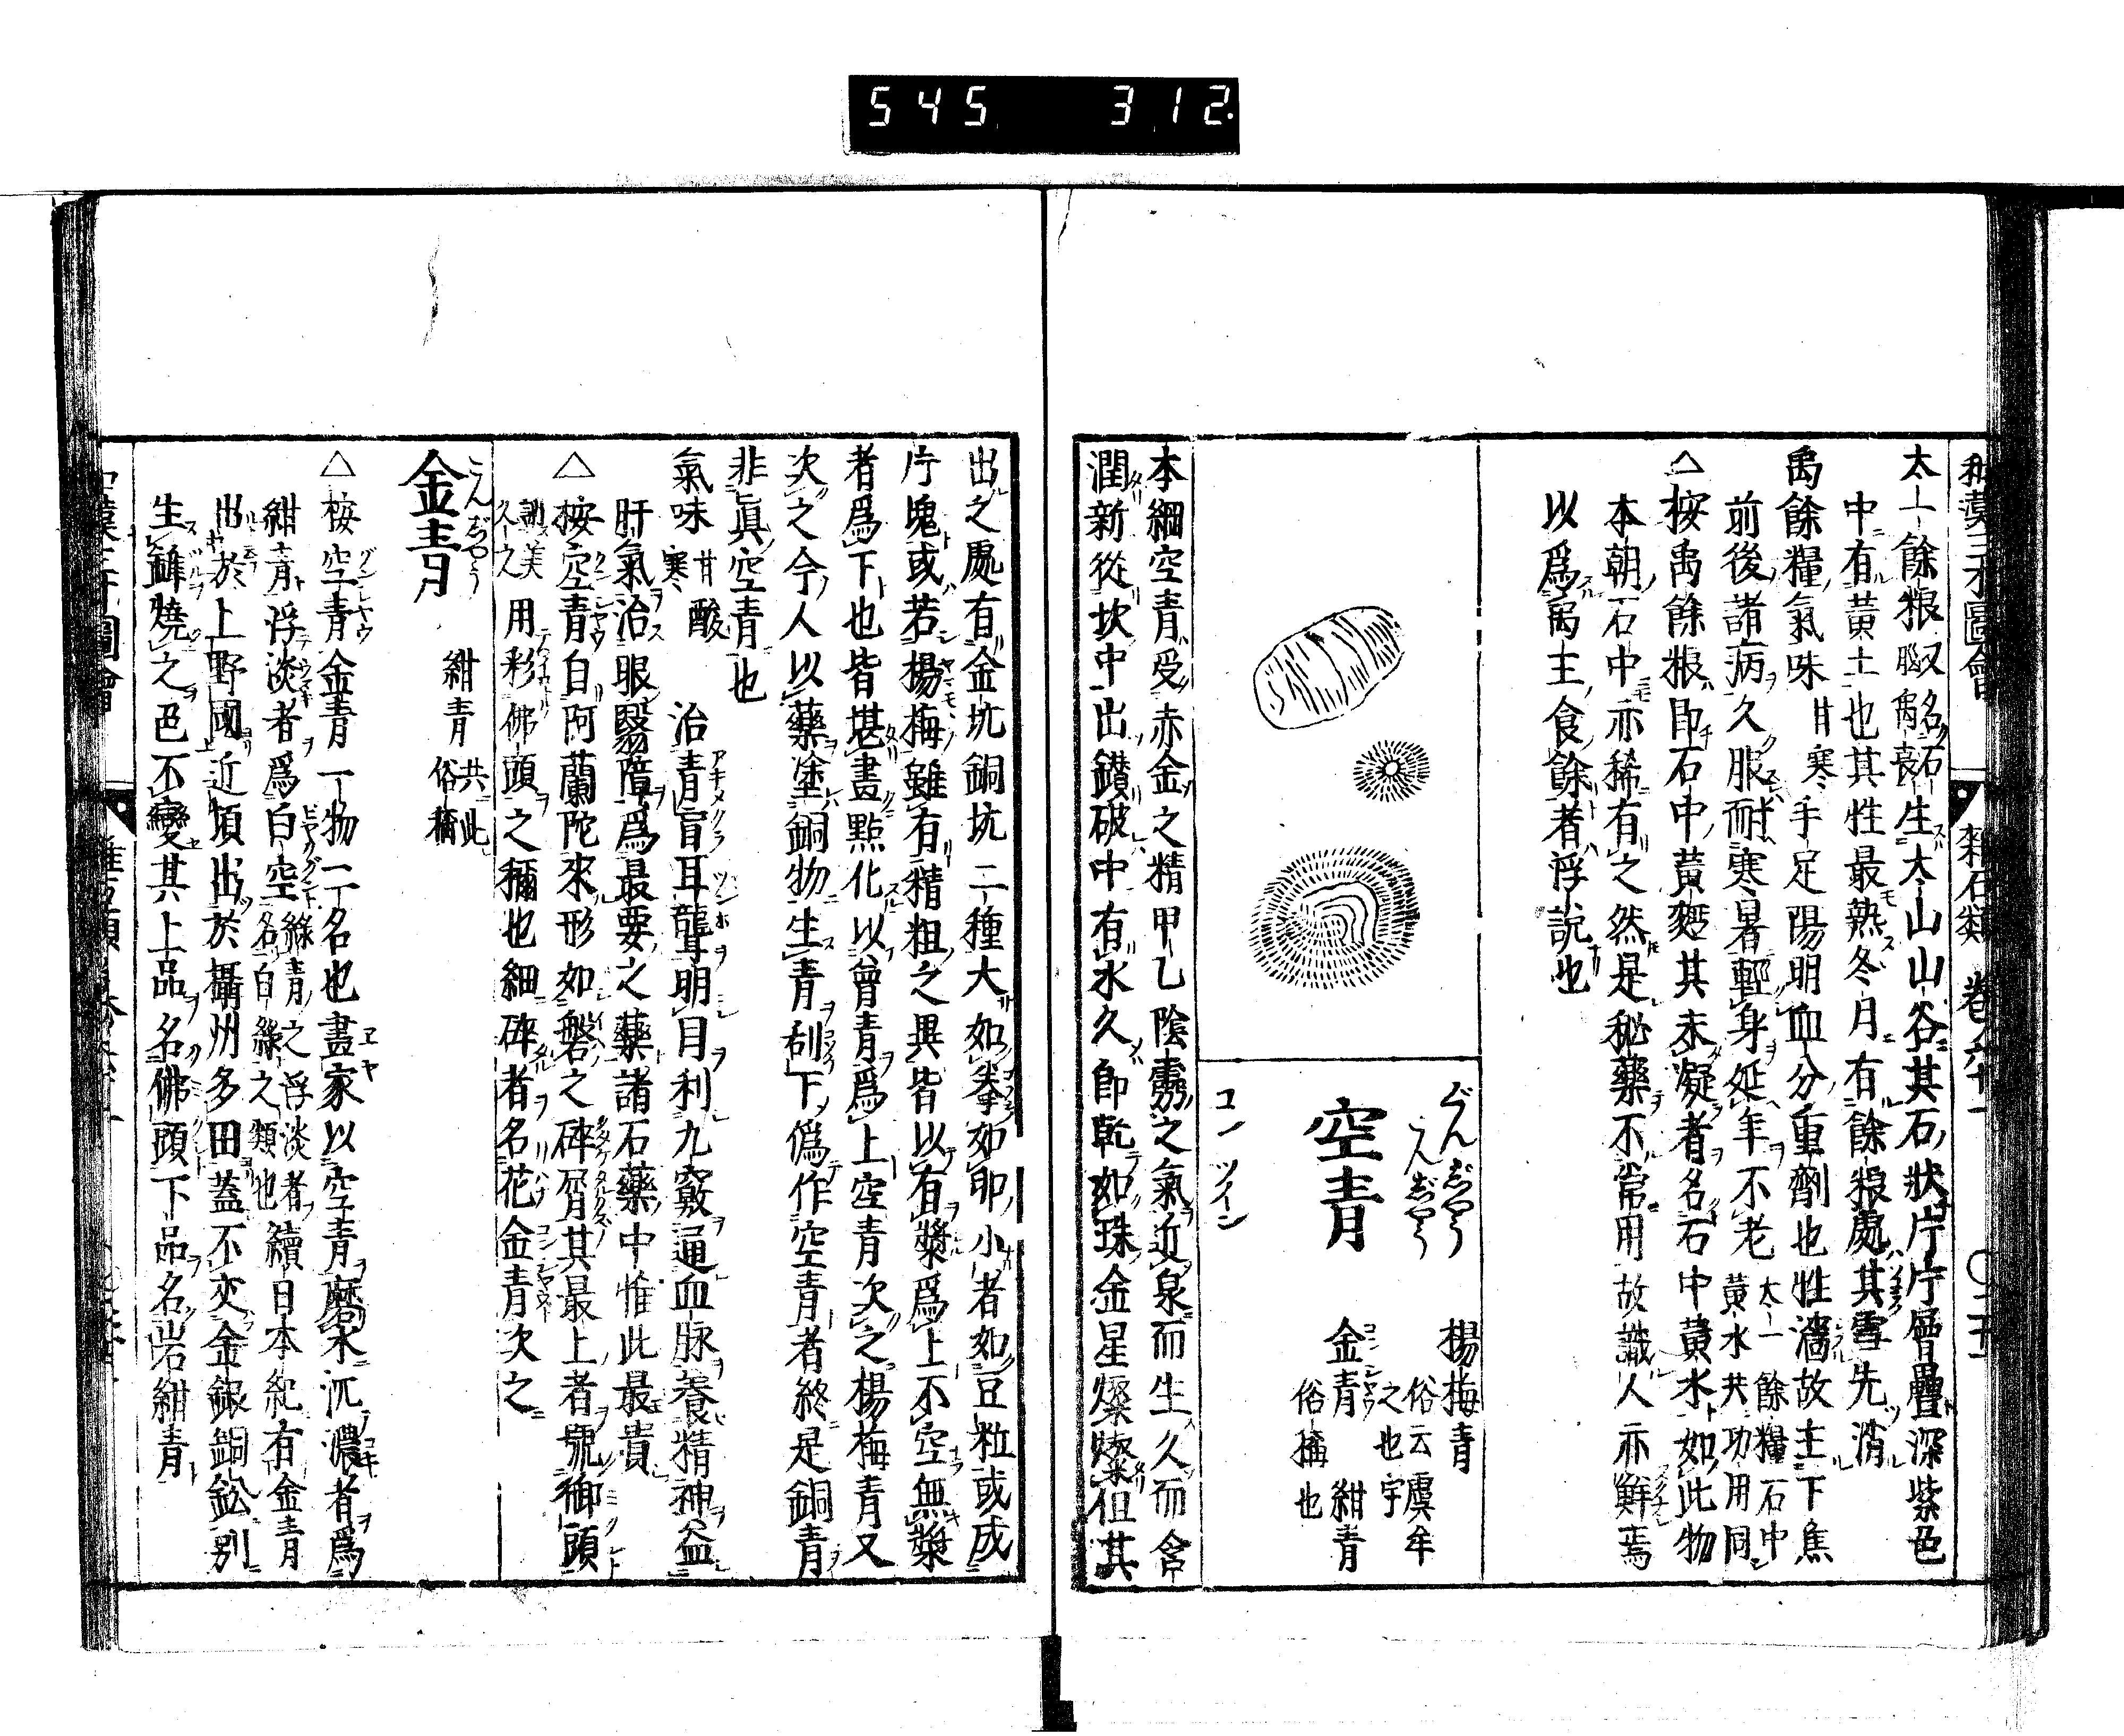 545 312.
和漢三才圖會 雜石類 卷六十一 〇二十五
太一餘粮 生太山山谷其石狀片片層疊深紫色
中有黃土也其性最熱冬月有餘粮處其雪先消
禹餘糧氣味 甘寒 手足陽明血分重劑也性濇故主下焦
前後諸病久服耐寒暑輕身延年不老 太一餘糧石中
黃水共功用同
△按禹餘粮即石中黃麪其未凝者名石中黃水如此物
本朝石中亦稀有之然是秘藥不常用故識人亦鮮焉
以爲禹主食餘者浮說也
ぐんじやう
こんじやう
空青
コン ツイン
楊梅青
俗云虞牟
之也宇
金青 紺青
俗稱也
本綱空青受赤金之精甲乙陰靈之氣近泉而生久而含
潤新從坎中出鑚破中有水久即乾如珠金星燦燦但其
出之處有金坑銅坑二種大如拳如卵小者如豆粒或成
片塊或若楊梅雖有精粗之異皆以有漿爲上不空無漿
者爲下也皆堪畫點化以曾青爲上空青次之楊梅青又
次之今人以藥塗銅物生青刮下僞作空青者終是銅青
非眞空青也
氣味 甘酸寒 治青盲耳聾明目利九竅通血脉養精神益
肝氣治眼翳障爲最要之藥諸石藥中惟此最貴
△按空青自阿蘭陀來形如磐之碎屑其最上者號御頭
用彩佛頭之稱也細碎者名花金青次之
こんじやう
金青 紺青 共此
俗稱
△按空青金青一物二名也畫家以空青磨水沉濃者爲
紺青浮淡者爲白空 綠青之浮淡者
名白綠之類也 續日本紀有金青
出於上野國近頃出於攝州多田蓋不交金銀銅鈆別
生鏟燒之色不變其上品名佛頭下品名岩紺青